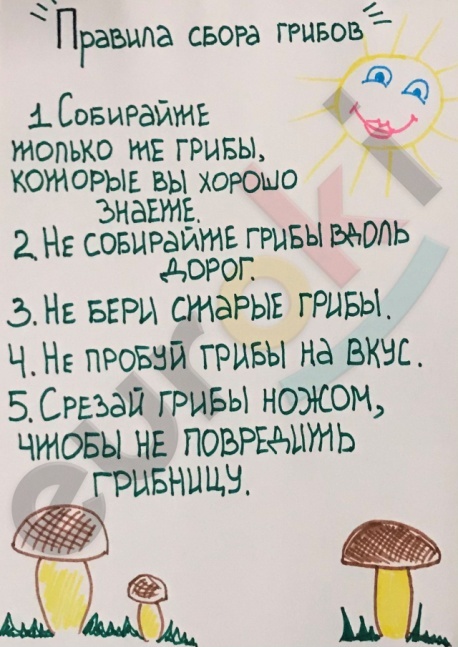 Правила сбора грибов
1 Собирайте
только те грибы,
которые вы хорошо
знаете.
2. Не собирайте грибы вдоль
дорог.
3. Не бери старые грибы.
4. Не пробуй грибы на вкус.
5. Срезай грибы ножом,
чтобы не повредить
грибницу.
euroki